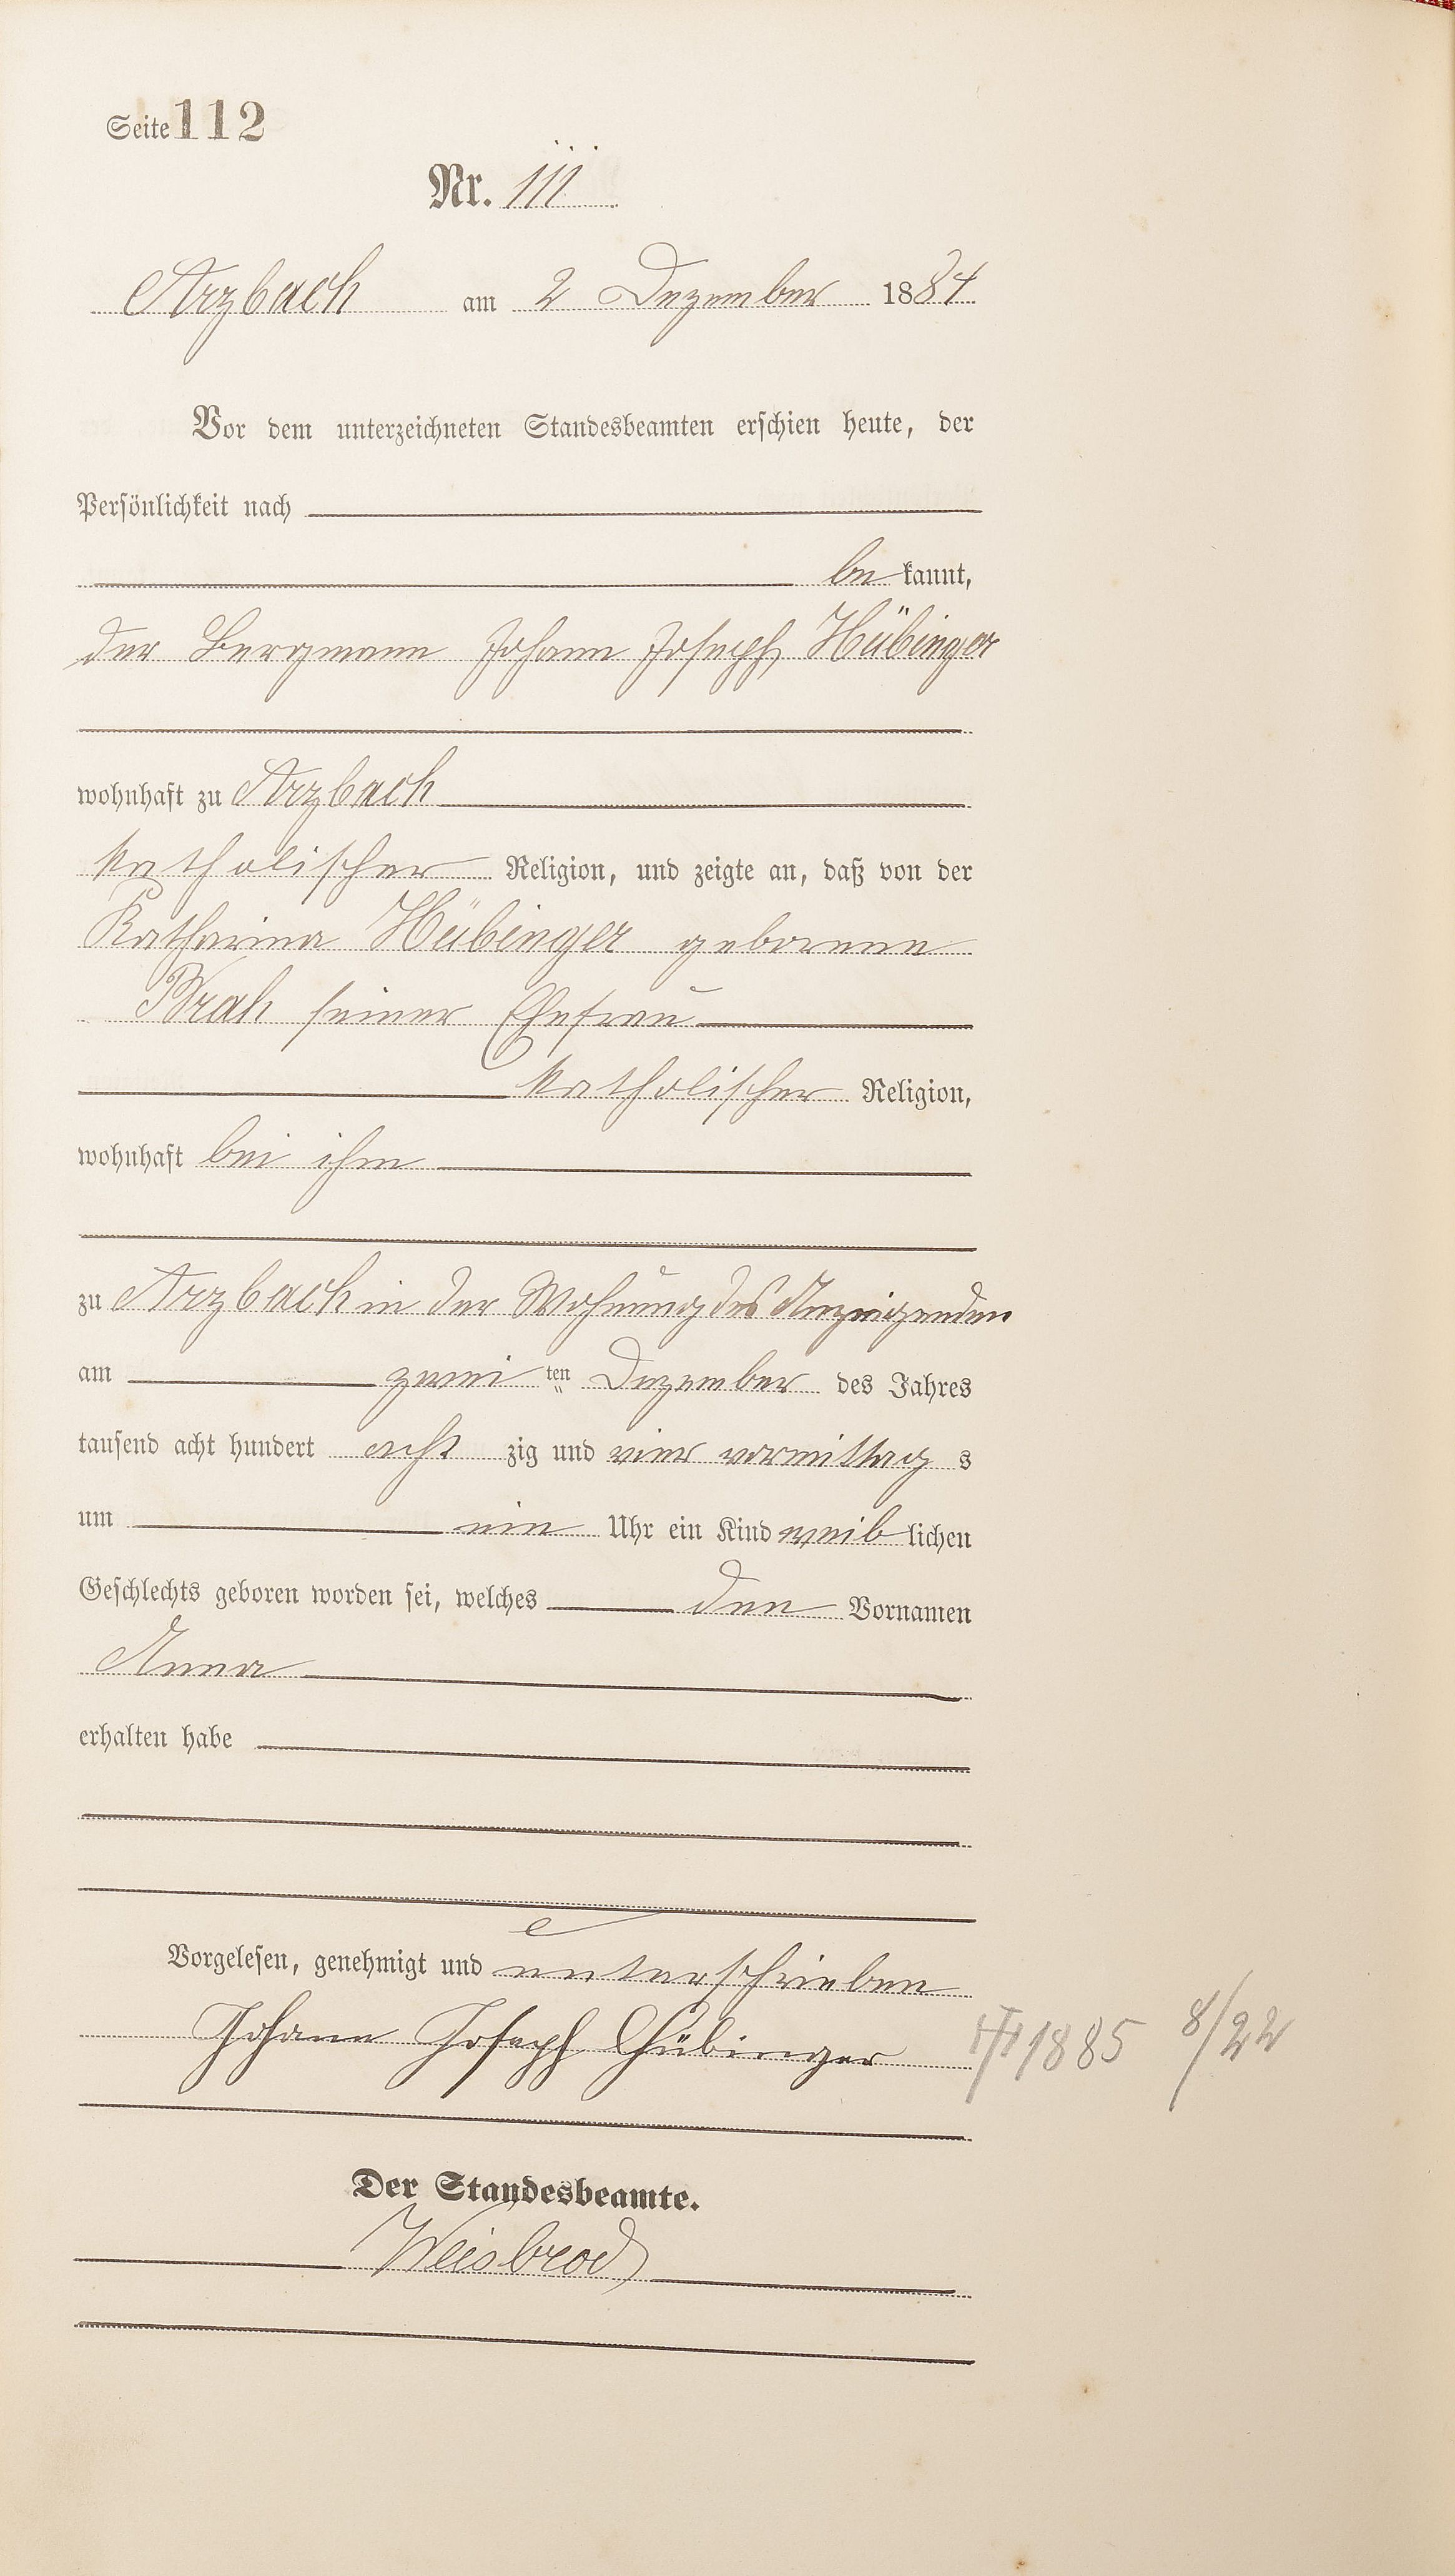 Seite 112
Nr. 111
Arzbach am 2 Dezember 1884
Vor dem unterzeichneten Standesbeamten erschien heute, der
Persönlichkeit nach
be kannt,
der Bergmann Johann Joseph Hübinger
wohnhaft zu Arzbach
katholischer Religion, und zeigte an, daß von der
Katharina Hübinger geborenen
seiner Ehefrau
katholischer Religion,
wohnhaft bei ihm
zu Arzbach in der Wohnung des Anzeigenden
am zwei ten Dezember des Jahres
tausend acht hundert acht zig und vier vormittag s
um ein Uhr ein Kind weib lichen
Geschlechts geboren worden sei, welches den Vornamen
Anna
erhalten habe
Vorgelesen, genehmigt und unterschrieben
Johann Joseph Hübinger
1885 8/22
Der Standesbeamte.
Weisbrod